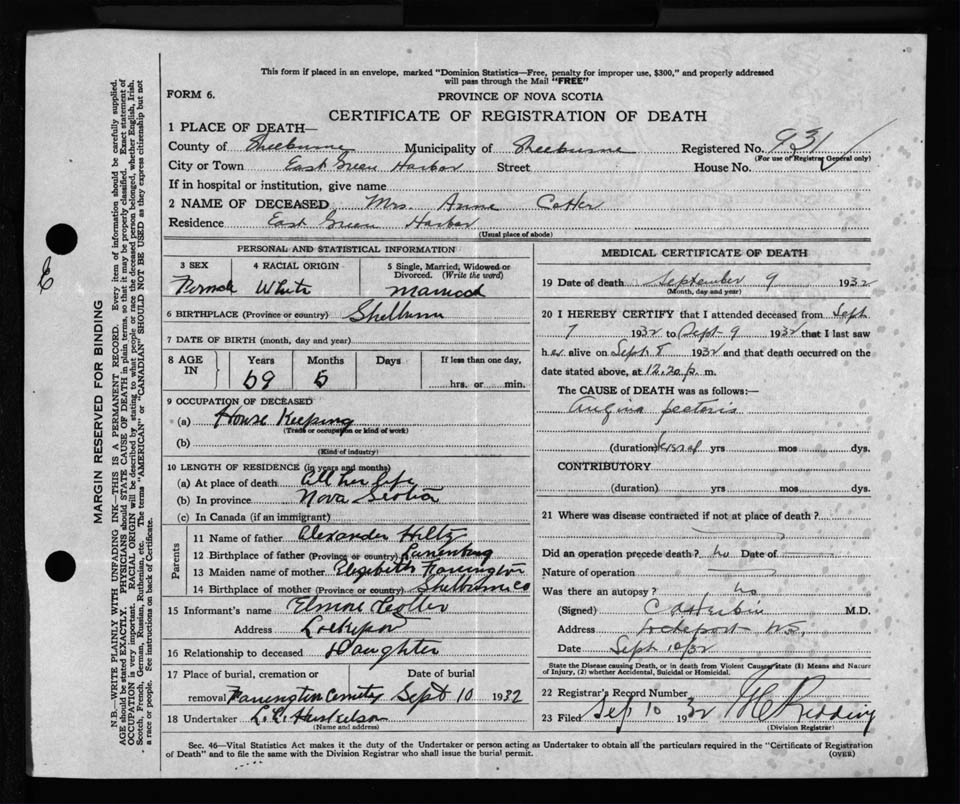 This form if placed in an envelope, marked "Dominion Statistics—Free, penalty for improper use, $300," and properly addressed
will pass through the Mail "FREE"
FORM 6.
PROVINCE OF NOVA SCOTIA
CERTIFICATE OF REGISTRATION OF DEATH
1 PLACE OF DEATH—
County of Shelburne Municipality of Shelburne Registered No. 931
(For use of Registrar General only)
City or Town East Green Harbor Street House No.
If in hospital or institution, give name
2 NAME OF DECEASED Mrs. Anne Cotter
Residence East Green Harbor
(Usual place of abode)
PERSONAL AND STATISTICAL INFORMATION
3 SEX 4 RACIAL ORIGIN 5 Single, Married, Widowed or Divorced. (Write the word)
Female White Married
6 BIRTHPLACE (Province or country) Shelburne
7 DATE OF BIRTH (month, day and year)
8 AGE IN Years Months Days If less than one day,
69 5 hrs. or min.
9 OCCUPATION OF DECEASED
(a) House Keeping
(Trade or occupation or kind of work)
(b)
(Kind of industry)
10 LENGTH OF RESIDENCE (in years and months)
(a) At place of death all her life
(b) In province Nova Scotia
(c) In Canada (if an immigrant)
Parents
11 Name of father Alexander Hiltz
12 Birthplace of father (Province or country) Lunenburg
13 Maiden name of mother Elizabeth
14 Birthplace of mother (Province or country) Shelburne Co
15 Informant's name Elmore
Address Lockeport
16 Relationship to deceased Daughter
17 Place of burial, cremation or Date of burial
removal Cemetery Sept 10 1932
18 Undertaker
(Name and address)
MEDICAL CERTIFICATE OF DEATH
19 Date of death September 9 1932
(Month, day and year)
20 I HEREBY CERTIFY that I attended deceased from Sept
7 1932 to Sept 9 1932 that I last saw
her alive on Sept 8 1932 and that death occurred on the
date stated above, at 12.20 p. m.
The CAUSE of DEATH was as follows:—
Angina pectoris
(duration) several yrs mos dys.
CONTRIBUTORY
(duration) yrs mos dys.
21 Where was disease contracted if not at place of death?
Did an operation precede death? no Date of
Nature of operation
Was there an autopsy? no
(Signed) M.D.
Address Lockeport N.S.
Date Sept 10/32
State the Disease causing Death, or in death from Violent Causes state (1) Means and Nature
of Injury, (2) whether Accidental, Suicidal or Homicidal.
22 Registrar's Record Number
23 Filed Sep 10 1932 Redding
(Division Registrar)
Sec. 46—Vital Statistics Act makes it the duty of the Undertaker or person acting as Undertaker to obtain all the particulars required in the "Certificate of Registration
of Death" and to file the same with the Division Registrar who shall issue the burial permit.
(OVER)
MARGIN RESERVED FOR BINDING
N.B.—WRITE PLAINLY WITH UNFADING INK—THIS IS A PERMANENT RECORD. Every item of information should be carefully supplied.
AGE should be stated EXACTLY. PHYSICIANS should STATE CAUSE OF DEATH in plain terms, so that it may be properly classified. Exact statement of
OCCUPATION is very important. RACIAL ORIGIN will be described by stating to what people or race the deceased person belonged, whether English, Irish,
Scotch, French, German, Russian, Ruthenian, etc. The terms "AMERICAN" or "CANADIAN" SHOULD NOT BE USED as they express citizenship but not
a race or people. See instructions on back of Certificate.